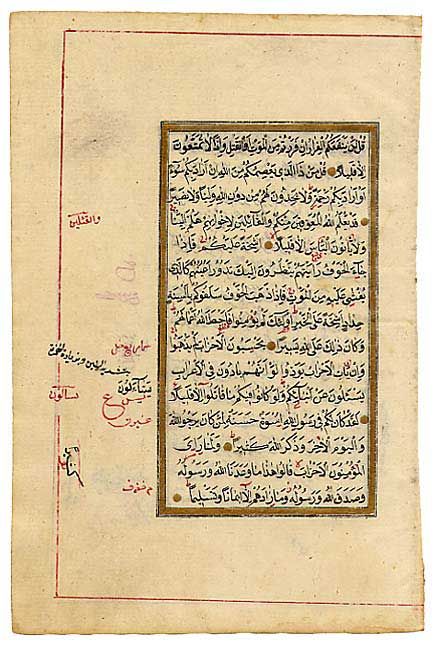 قل لن ينفعكم الفرار ان فررتم من الموت او القتل واذا لا تمتعون
الا قليلا قل من ذا الذي يعصمكم من الله ان اراد بكم سوءا
او اراد بكم رحمة ولا يجدون لهم من دون الله وليا ولا نصيرا
قد يعلم الله المعوقين منكم والقائلين لاخوانهم هلم الينا
ولا ياتون الباس الا قليلا اشحة عليكم فاذا
جاء الخوف رايتهم ينظرون اليك تدور اعينهم كالذي
يغشى عليه من الموت فاذا ذهب الخوف سلقوكم بالسنة
حداد اشحة على الخير اولئك لم يؤمنوا فاحبط الله اعمالهم
وكان ذلك على الله يسيرا يحسبون الاحزاب لم يذهبوا
وان يات الاحزاب يودوا لو انهم بادون في الاعراب
يسئلون عن انبائكم ولو كانوا فيكم ما قاتلوا الا قليلا
لقد كان لكم في رسول الله اسوة حسنة لمن كان يرجو الله
واليوم الاخر وذكر الله كثيرا ولما راى
المؤمنون الاحزاب قالوا هذا ما وعدنا الله ورسوله
وصدق الله ورسوله وما زادهم الا ايمانا وتسليما
والقتلين
يساءلون
يسالون